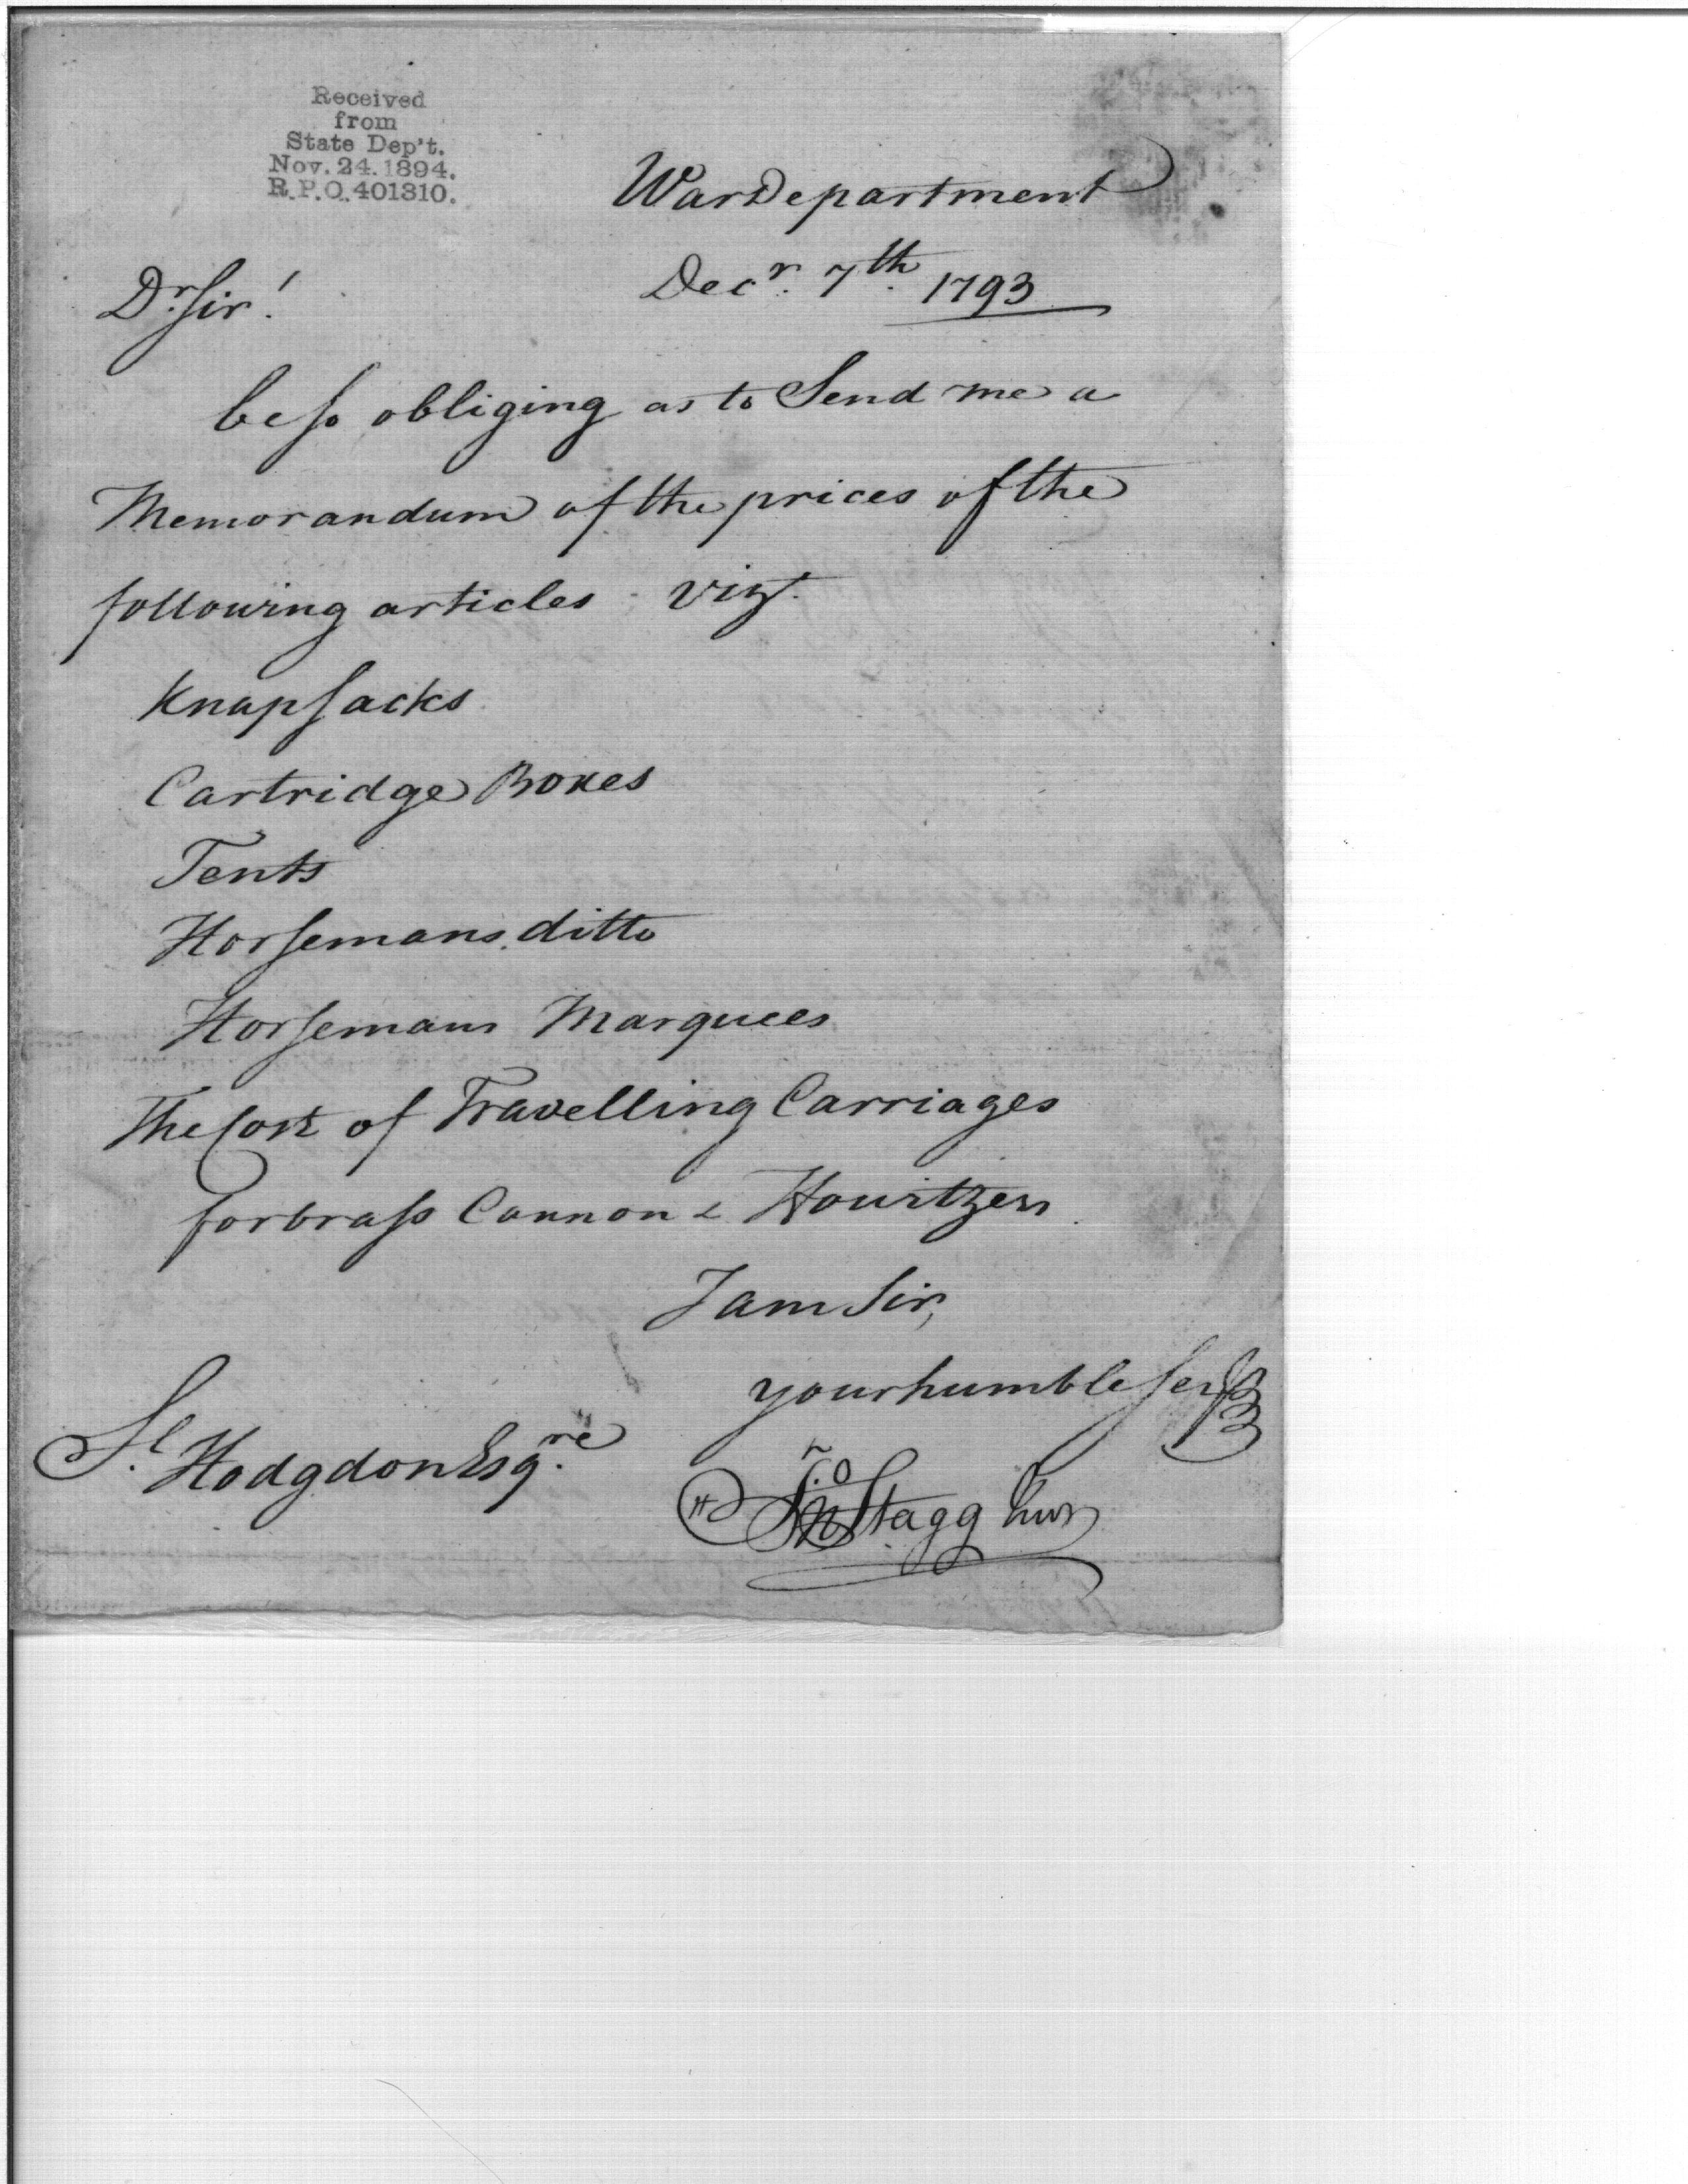 Received
from
State Dep't.
Nov. 24. 1894.
R.P.O. 401310.
War Department
Decr. 7th. 1793
Dr. Sir!
be so obliging as to Send me a
Memorandum of the prices of the
following articles vizt.
Knapsacks
Cartridge Boxes
Tents
Horsemans ditto
Horsemans Marquees
The Cost of Travelling Carriages
for brass Cannon & Howitzers
I am Sir,
your humble Servt
Sl. Hodgdon Esqre.
Jno. Stagg Junr